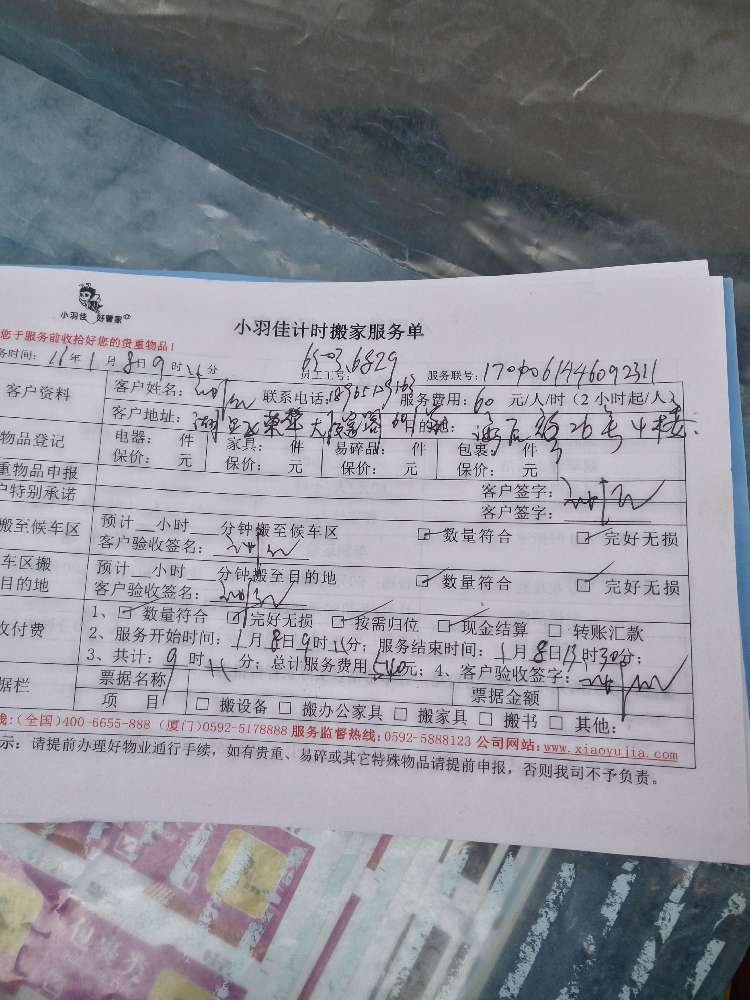 小羽佳 好管家
小羽佳计时搬家服务单
您于服务前收拾好您的贵重物品!
务时间: 年1月8日9时 分 员工工号: 6503、6829 服务联号:
客户资料 客户姓名: 联系电话: 服务费用:60元/人/时(2小时起/人)
客户地址: 目的地: 26号4楼
物品登记 电器: 件 家具: 件 易碎品: 件 包裹: 件
保价: 元 保价: 元 保价: 元 保价: 元
重物品申报 客户签字:
户特别承诺 客户签字:
搬至候车区 预计__小时__分钟搬至候车区 ☑ 数量符合 ☑ 完好无损
客户验收签名:
车区搬目的地 预计__小时__分钟搬至目的地 ☑ 数量符合 ☑ 完好无损
客户验收签名:
收付费 1、☑ 数量符合 ☑ 完好无损 ☑ 按需归位 ☑ 现金结算 □ 转账汇款
2、服务开始时间:1月8日9时 分;服务结束时间:1月8日13时30分;
3、共计:9时 分;总计服务费用540元;4、客户验收签字:
据栏 票据名称 票据金额
项 目 □ 搬设备 □ 搬办公家具 □ 搬家具 □ 搬书 □ 其他:
线:(全国)400-6655-888 (厦门)0592-5178888 服务监督热线:0592-5888123 公司网站:www.xiaoyujia.com
示:请提前办理好物业通行手续,如有贵重、易碎或其它特殊物品请提前申报,否则我司不予负责。